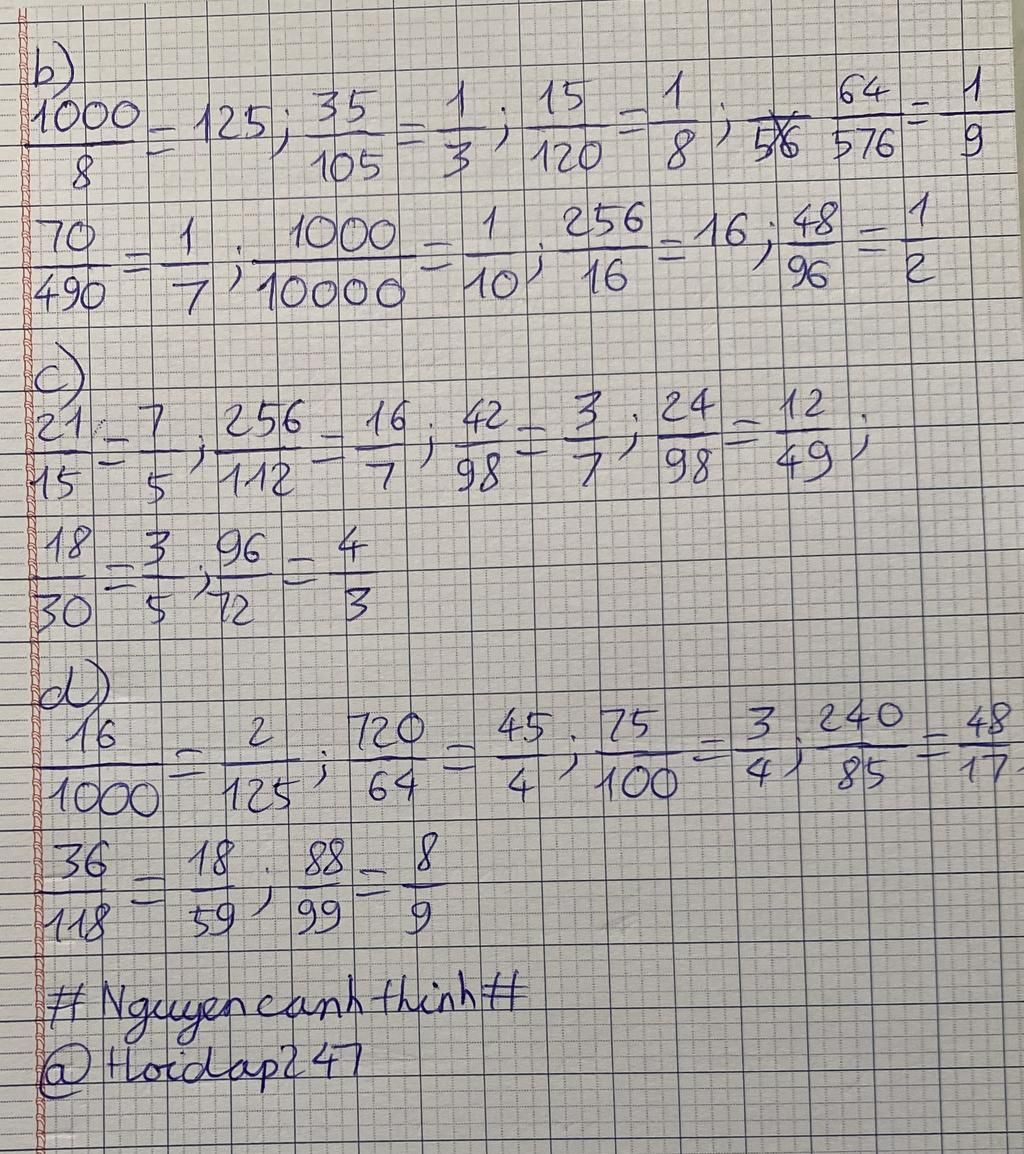 b)
1000/8 = 125; 35/105 = 1/3; 15/120 = 1/8; 56 64/576 = 1/9
70/490 = 1/7; 1000/10000 = 1/10; 256/16 = 16; 48/96 = 1/2
c)
21/15 = 7/5; 256/112 = 16/7; 42/98 = 3/7; 24/98 = 12/49;
18/30 = 3/5; 96/72 = 4/3
d)
16/1000 = 2/125; 720/64 = 45/4; 75/100 = 3/4; 240/85 = 48/17
36/118 = 18/59; 88/99 = 8/9
#Nguyencanhthinh#
@Hoidap247